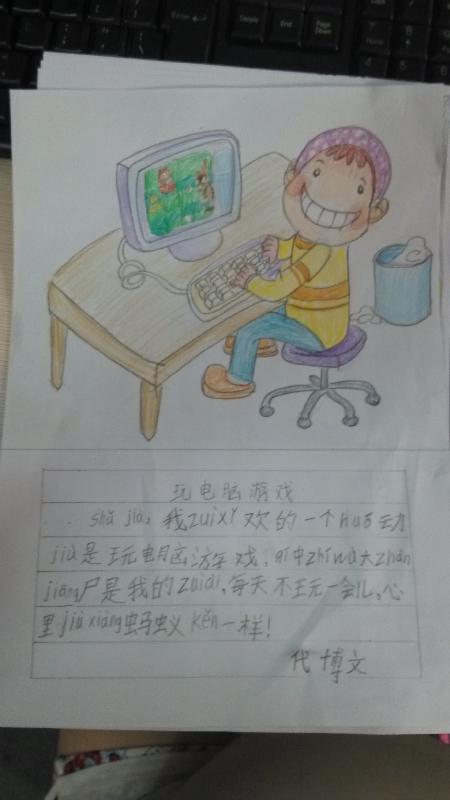 Enter
Delete
End
Page Down
玩电脑游戏
shǔ jià, 我zuìxǐ欢的一个huó动
jiù是玩电脑游戏, 其中zhíwù大zhàn
jiāng尸是我的zuìài, 每天不玩一会儿, 心
里jiù xiàng蚂蚁kěn一样!
代博文